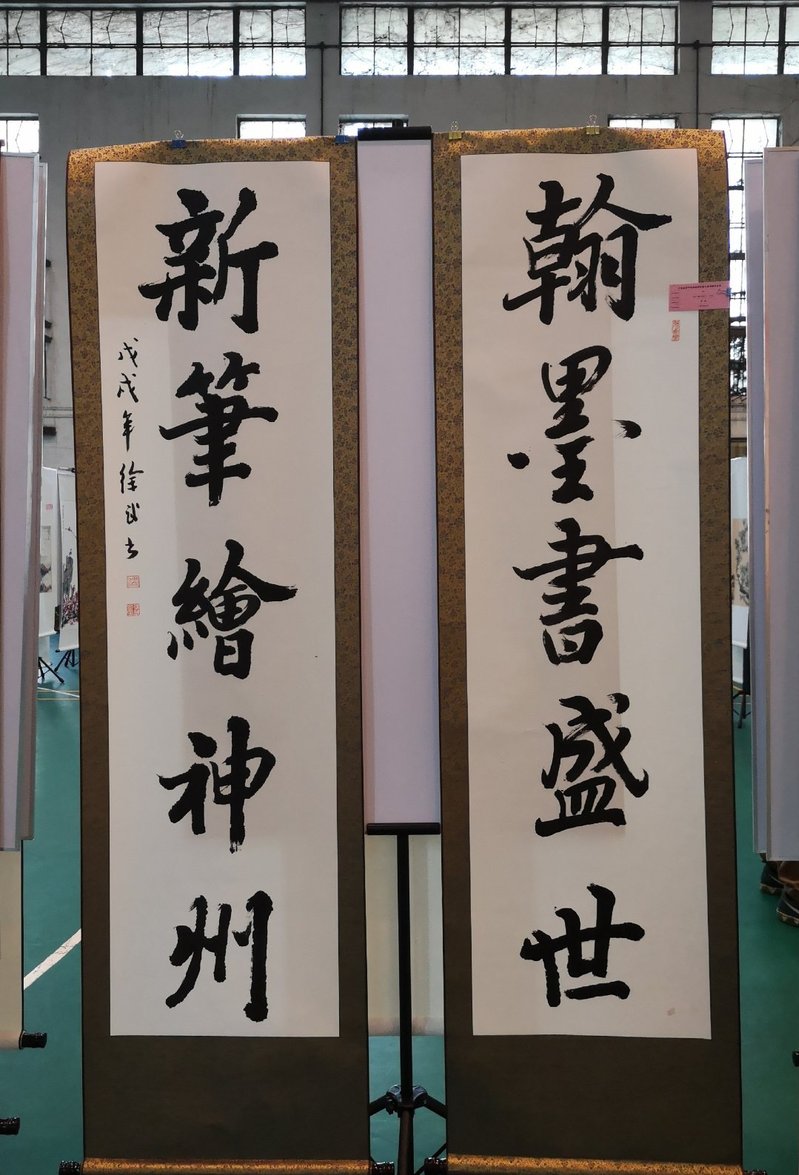 翰墨書盛世
新筆繪神州
戊戌年徐武书